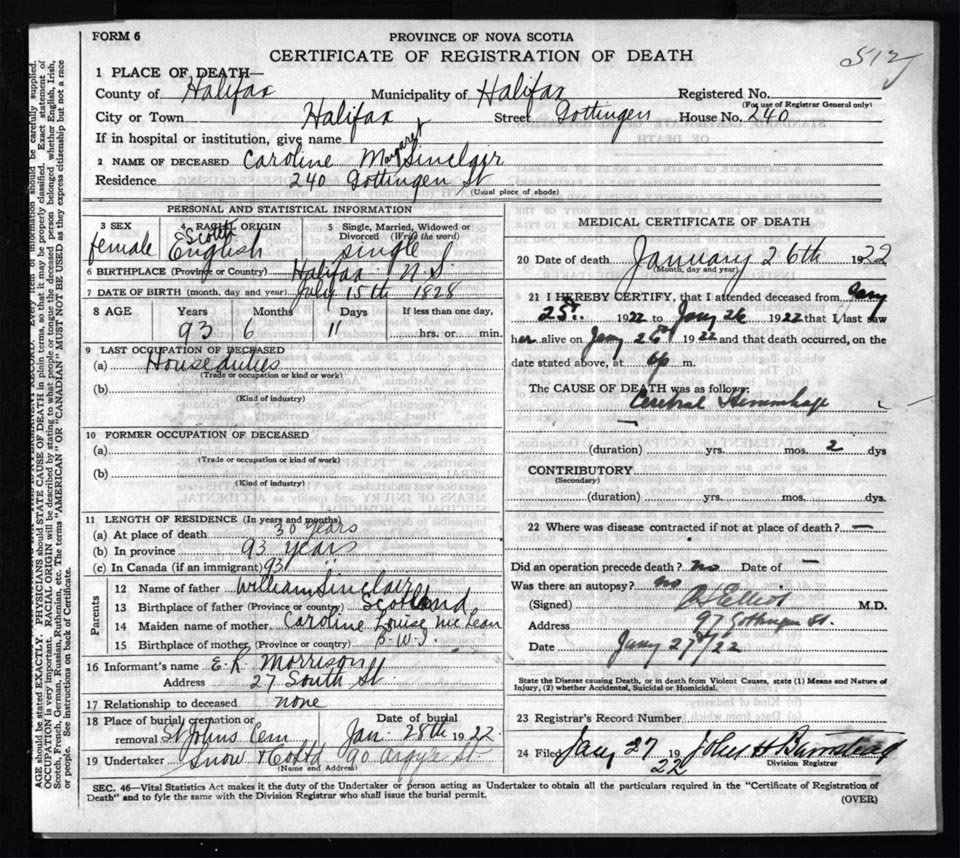 FORM 6
PROVINCE OF NOVA SCOTIA
CERTIFICATE OF REGISTRATION OF DEATH
1 PLACE OF DEATH—
County of Halifax Municipality of Halifax Registered No.
(For use of Registrar General only)
City or Town Halifax Street Gottingen House No. 240
If in hospital or institution, give name
2 NAME OF DECEASED Caroline Margaret Sinclair
Residence 240 Gottingen St
(Usual place of abode)
PERSONAL AND STATISTICAL INFORMATION
3 SEX 4 RACIAL ORIGIN 5 Single, Married, Widowed or Divorced (Write the word)
female Scotch English single
6 BIRTHPLACE (Province or Country) Halifax N.S.
7 DATE OF BIRTH (month, day and year) July 15th 1828
8 AGE Years Months Days If less than one day,
93 6 11 hrs. or min.
9 LAST OCCUPATION OF DECEASED
(a) House duties
(Trade or occupation or kind or work)
(b)
(Kind of industry)
10 FORMER OCCUPATION OF DECEASED
(a)
(Trade or occupation or kind of work)
(b)
(Kind of industry)
11 LENGTH OF RESIDENCE (In years and months)
(a) At place of death 30 years
(b) In province 93 years
(c) In Canada (if an immigrant) 93
Parents
12 Name of father William Sinclair
13 Birthplace of father (Province or country) Scotland
14 Maiden name of mother Caroline Louise McLean
15 Birthplace of mother (Province or country) B.W.I.
16 Informant's name E. K. Morrison
Address 27 South St.
17 Relationship to deceased none
18 Place of burial cremation or removal St Johns Cem Date of burial Jan. 28th 1922
19 Undertaker Snow & Co Ltd 90 Argyle St.
(Name and Address)
MEDICAL CERTIFICATE OF DEATH
20 Date of death January 26th 1922
(Month, day and year)
21 I HEREBY CERTIFY, that I attended deceased from Jany
25th 1922 to Jany 26 1922 that I last saw
her alive on Jany 26th 1922 and that death occurred, on the
date stated above, at 6 p. m.
The CAUSE OF DEATH was as follows:
Cerebral Hemorrhage
(duration) yrs. mos. 2 dys
CONTRIBUTORY
(Secondary)
(duration) yrs. mos. dys.
22 Where was disease contracted if not at place of death? —
Did an operation precede death? no Date of —
Was there an autopsy? no
(Signed) Elliot M.D.
Address 97 Gottingen St.
Date Jany 27/22
State the Disease causing Death, or in death from Violent Causes, state (1) Means and Nature of Injury, (2) whether Accidental, Suicidal or Homicidal.
23 Registrar's Record Number
24 Filed Jany 27 1922 John H Barnstead
Division Registrar
SEC. 46—Vital Statistics Act makes it the duty of the Undertaker or person acting as Undertaker to obtain all the particulars required in the "Certificate of Registration of
Death" and to fyle the same with the Division Registrar who shall issue the burial permit.
(OVER)
AGE should be stated EXACTLY. PHYSICIANS should STATE CAUSE OF DEATH in plain terms, so that it may be properly classified. Exact statement of
OCCUPATION is very important. RACIAL ORIGIN will be described by stating to what people or tongue the deceased person belonged whether English, Irish,
Scotch, French, German, Russian, Ruthenian, etc. The terms "AMERICAN" OR "CANADIAN" MUST NOT BE USED as they express citizenship but not a race
or people. See instructions on back of Certificate.